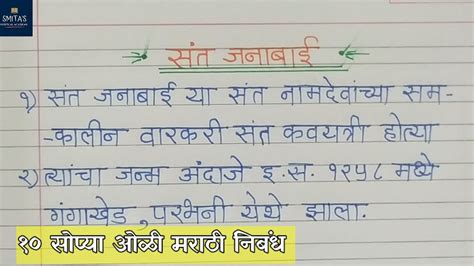 SMITA'S
संत जनाबाई
१) संत जनाबाई या संत नामदेवांच्या सम-
-कालीन वारकरी संत कवयत्री होत्या
२) त्यांचा जन्म अंदाजे इ.स. १२५८ मध्ये
गंगाखेड, परभनी येथे झाला.
१० सोप्या ओळी मराठी निबंध